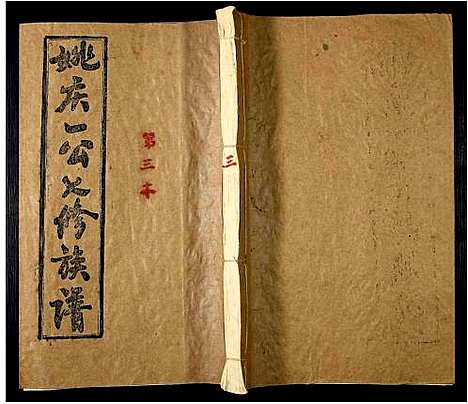 姚庆一公七修族谱
第三本
三